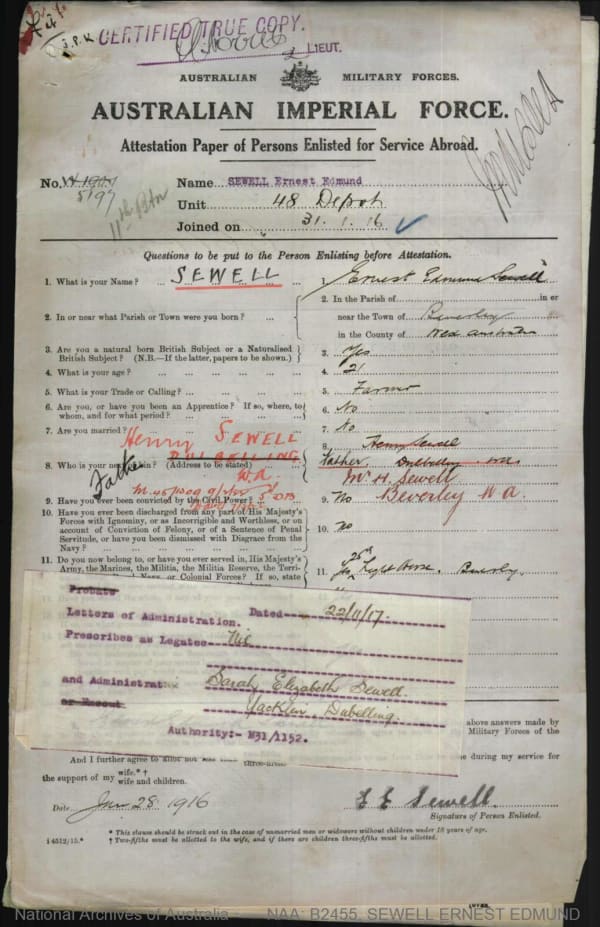 CERTIFIED TRUE COPY.
2 LIEUT.
AUSTRALIAN MILITARY FORCES.
AUSTRALIAN IMPERIAL FORCE.
Attestation Paper of Persons Enlisted for Service Abroad.
No. 5197
Name SEWELL Ernest Edmund
11th Btn
Unit 48 Depot
Joined on 31. 1. 16
Questions to be put to the Person Enlisting before Attestation.
1. What is your Name? SEWELL 1. Ernest Edmund Sewell
2. In or near what Parish or Town were you born? 2. In the Parish of in or
near the Town of Beverley
in the County of West Australia
3. Are you a natural born British Subject or a Naturalised British Subject? (N.B.—If the latter, papers to be shown.) 3. Yes
4. What is your age? 4. 21
5. What is your Trade or Calling? 5. Farmer
6. Are you, or have you been an Apprentice? If so, where, to whom, and for what period? 6. No
7. Are you married? 7. No
Henry SEWELL
DULBELLING
W.A.
Father
8. Who is your next of kin? (Address to be stated) 8. Henry Sewell
Father Dulbelling W.A.
Mr H. Sewell
Beverley W.A.
9. Have you ever been convicted by the Civil Power? 9. No
10. Have you ever been discharged from any part of His Majesty's
Forces with Ignominy, or as Incorrigible and Worthless, or on
account of Conviction of Felony, or of a Sentence of Penal
Servitude, or have you been dismissed with Disgrace from the
Navy? 10. No
11. Do you now belong to, or have you ever served in, His Majesty's
Army, the Marines, the Militia, the Militia Reserve, the Terri-
Naval or Colonial Forces? If so, state 11. 25th Light Horse. Beverley.
Probate
Letters of Administration. Dated 22/11/17.
Prescribes as Legatee Nil
and Administrat
Sarah Elizabeth Sewell.
or Execut
Dubelling.
Authority:- N31/1152.
above answers made by
Military Forces of the
And I further agree to allot not less than three-fifths
me during my service for
the support of my wife.*†
wife and children.
Date Jan 28 1916
E E Sewell
Signature of Person Enlisted.
* This clause should be struck out in the case of unmarried men or widowers without children under 18 years of age.
† Two-fifths must be allotted to the wife, and if there are children three-fifths must be allotted.
National Archives of Australia NAA: B2455, SEWELL ERNEST EDMUND